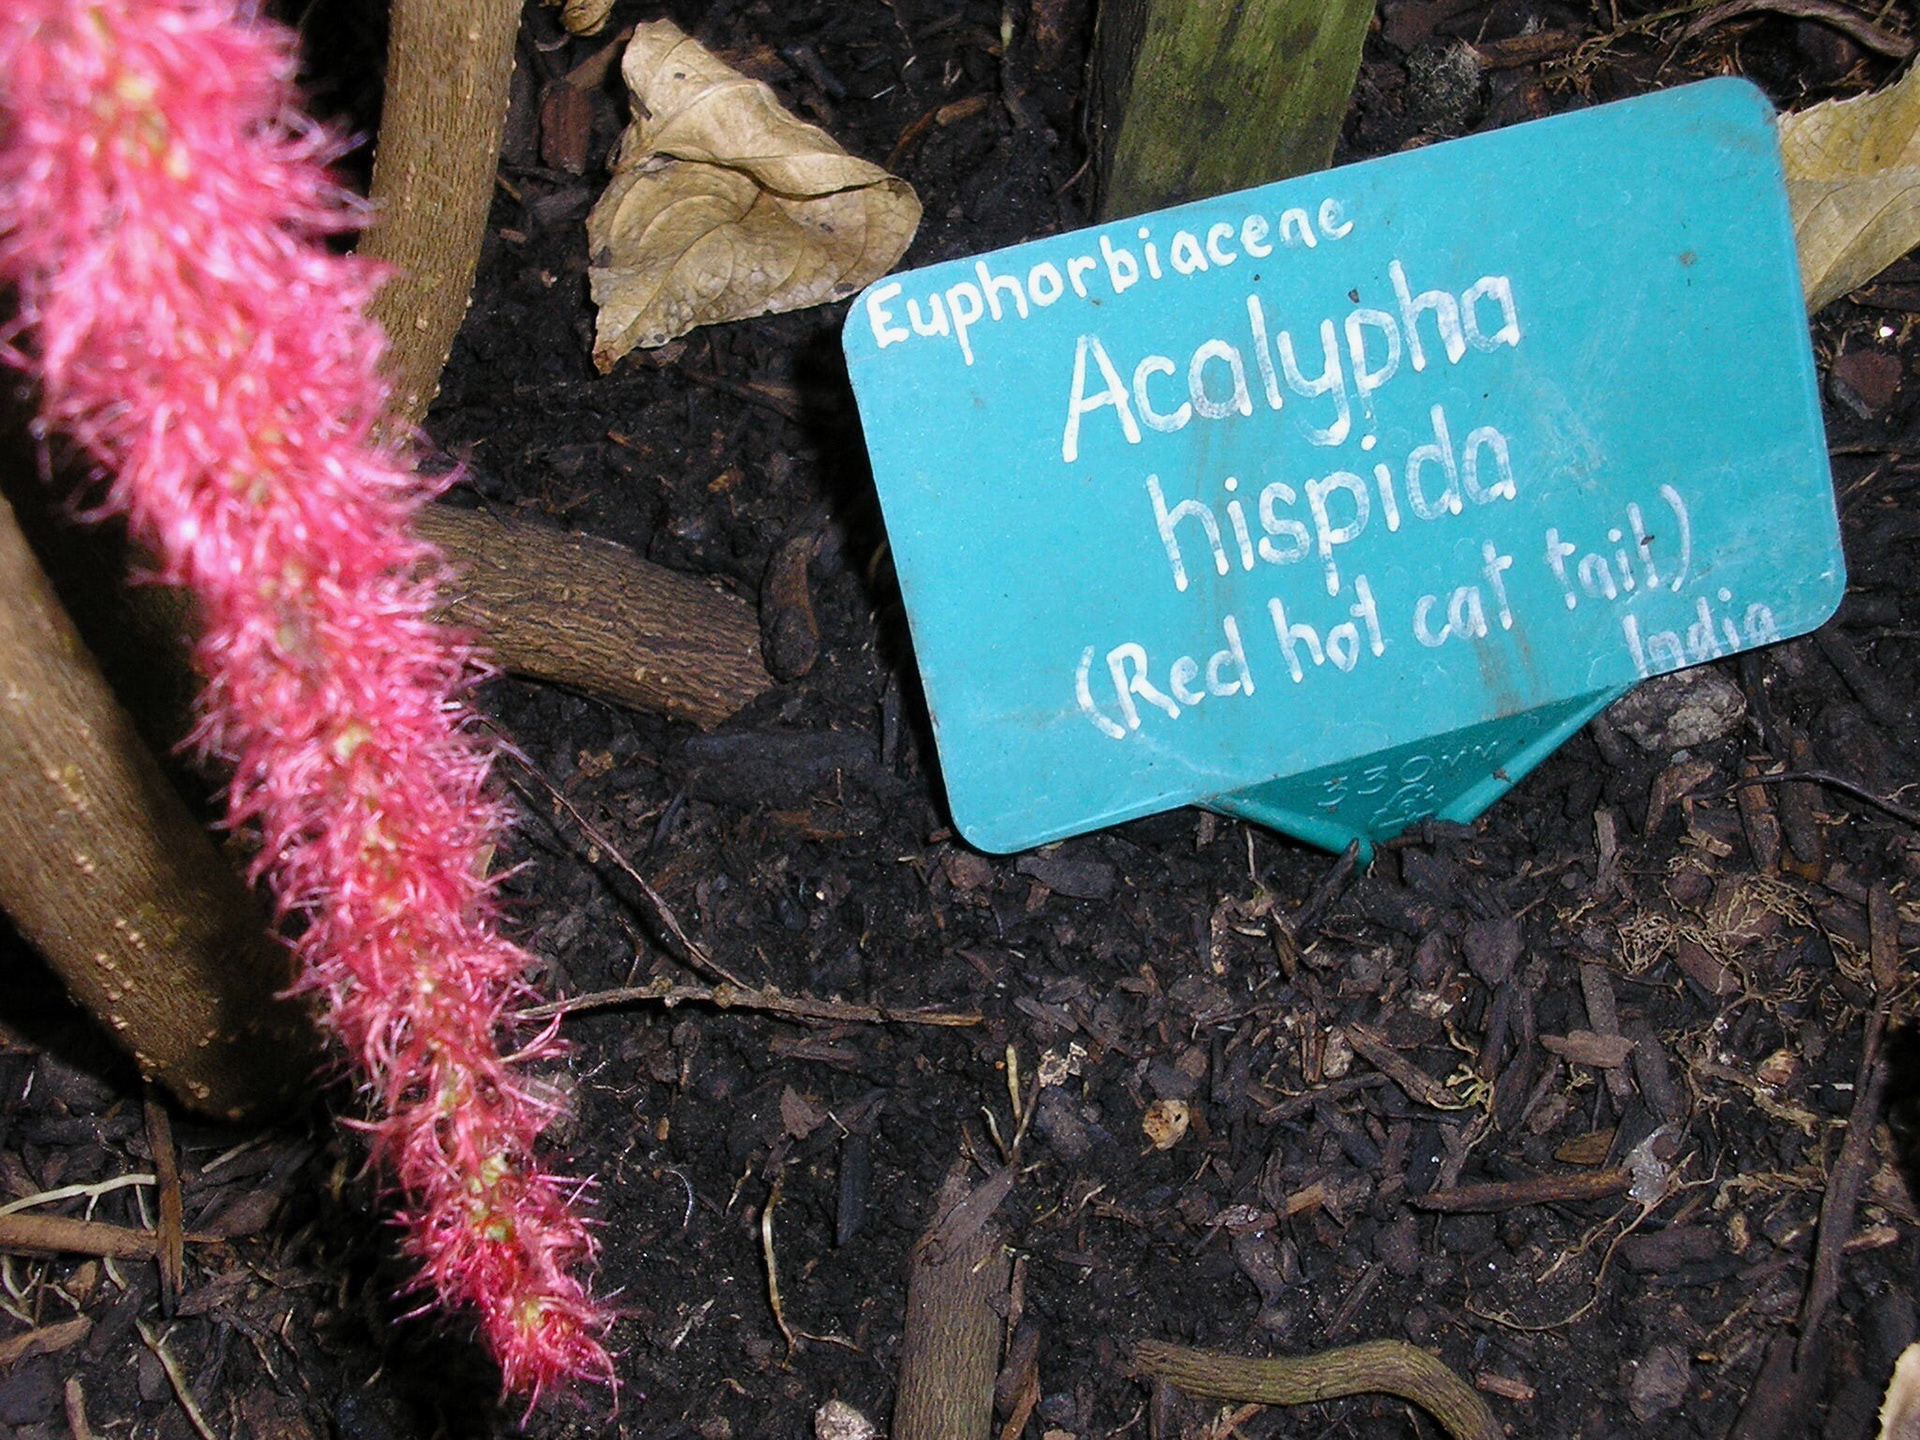 Euphorbiacene
Acalypha
hispida
(Red hot cat tail)
India
330mm